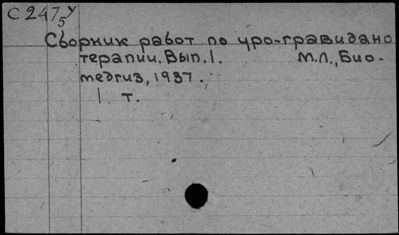 С 247 у
5
Сборник работ по уро-гравидано
терапии. Вып. 1. М.Л., Био-
медгиз, 1937.
1 т.